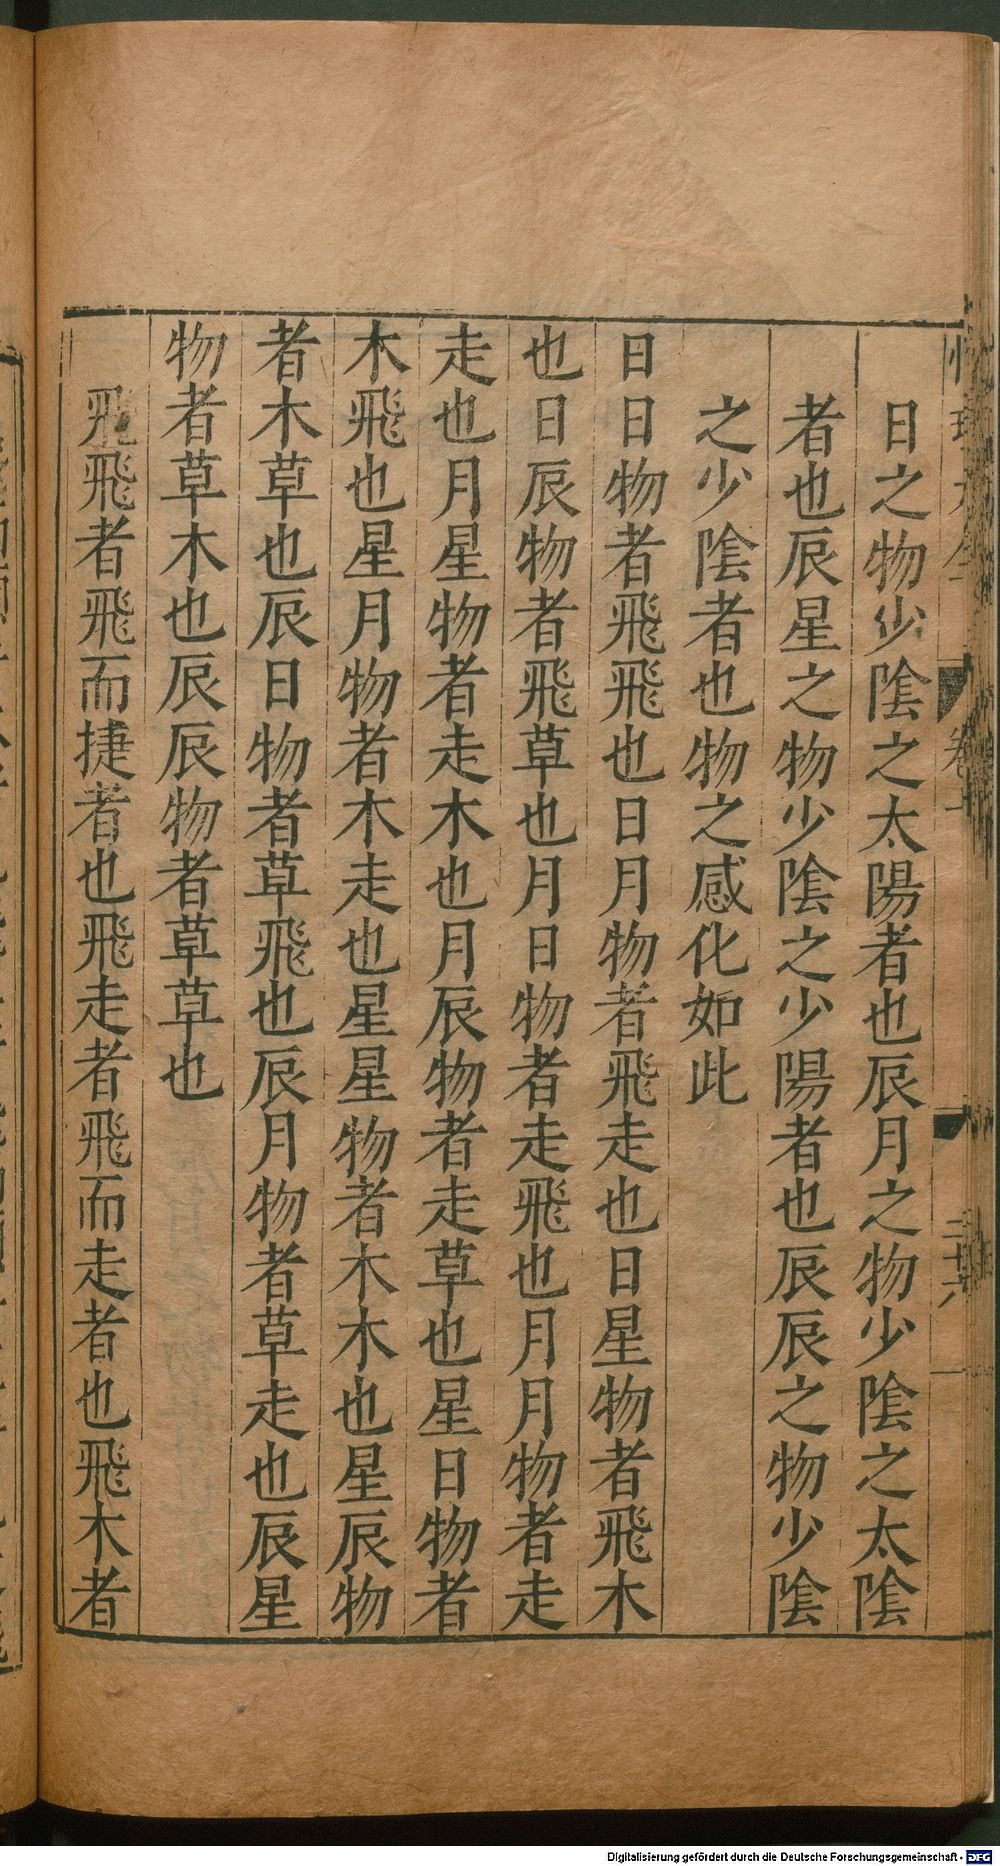 日之物少陰之太陽者也辰月之物少陰之太陰
者也辰星之物少陰之少陽者也辰辰之物少陰
之少陰者也物之感化如此
日日物者飛飛也日月物者飛走也日星物者飛木
也日辰物者飛草也月日物者走飛也月月物者走
走也月星物者走木也月辰物者走草也星日物者
木飛也星月物者木走也星星物者木木也星辰物
者木草也辰日物者草飛也辰月物者草走也辰星
物者草木也辰辰物者草草也
飛飛者飛而捷者也飛走者飛而走者也飛木者
Digitalisierung gefördert durch die Deutsche Forschungsgemeinschaft - DFG